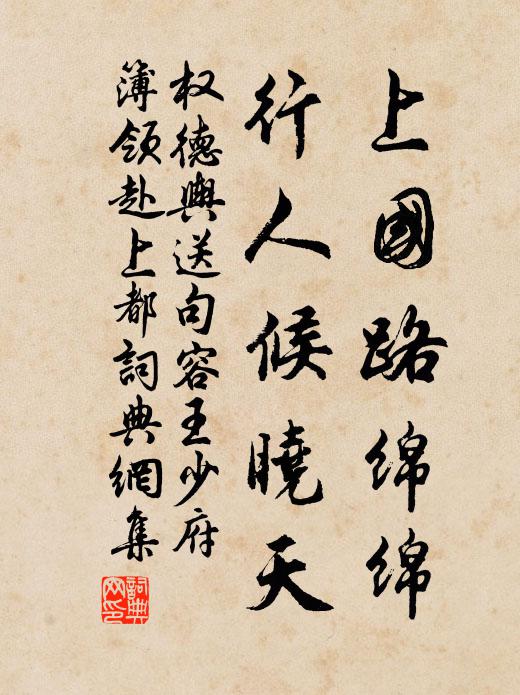 上國路绵绵
行人候曉天
权德輿送句容王少府
簿領赴上都詞典網集
詞典網印